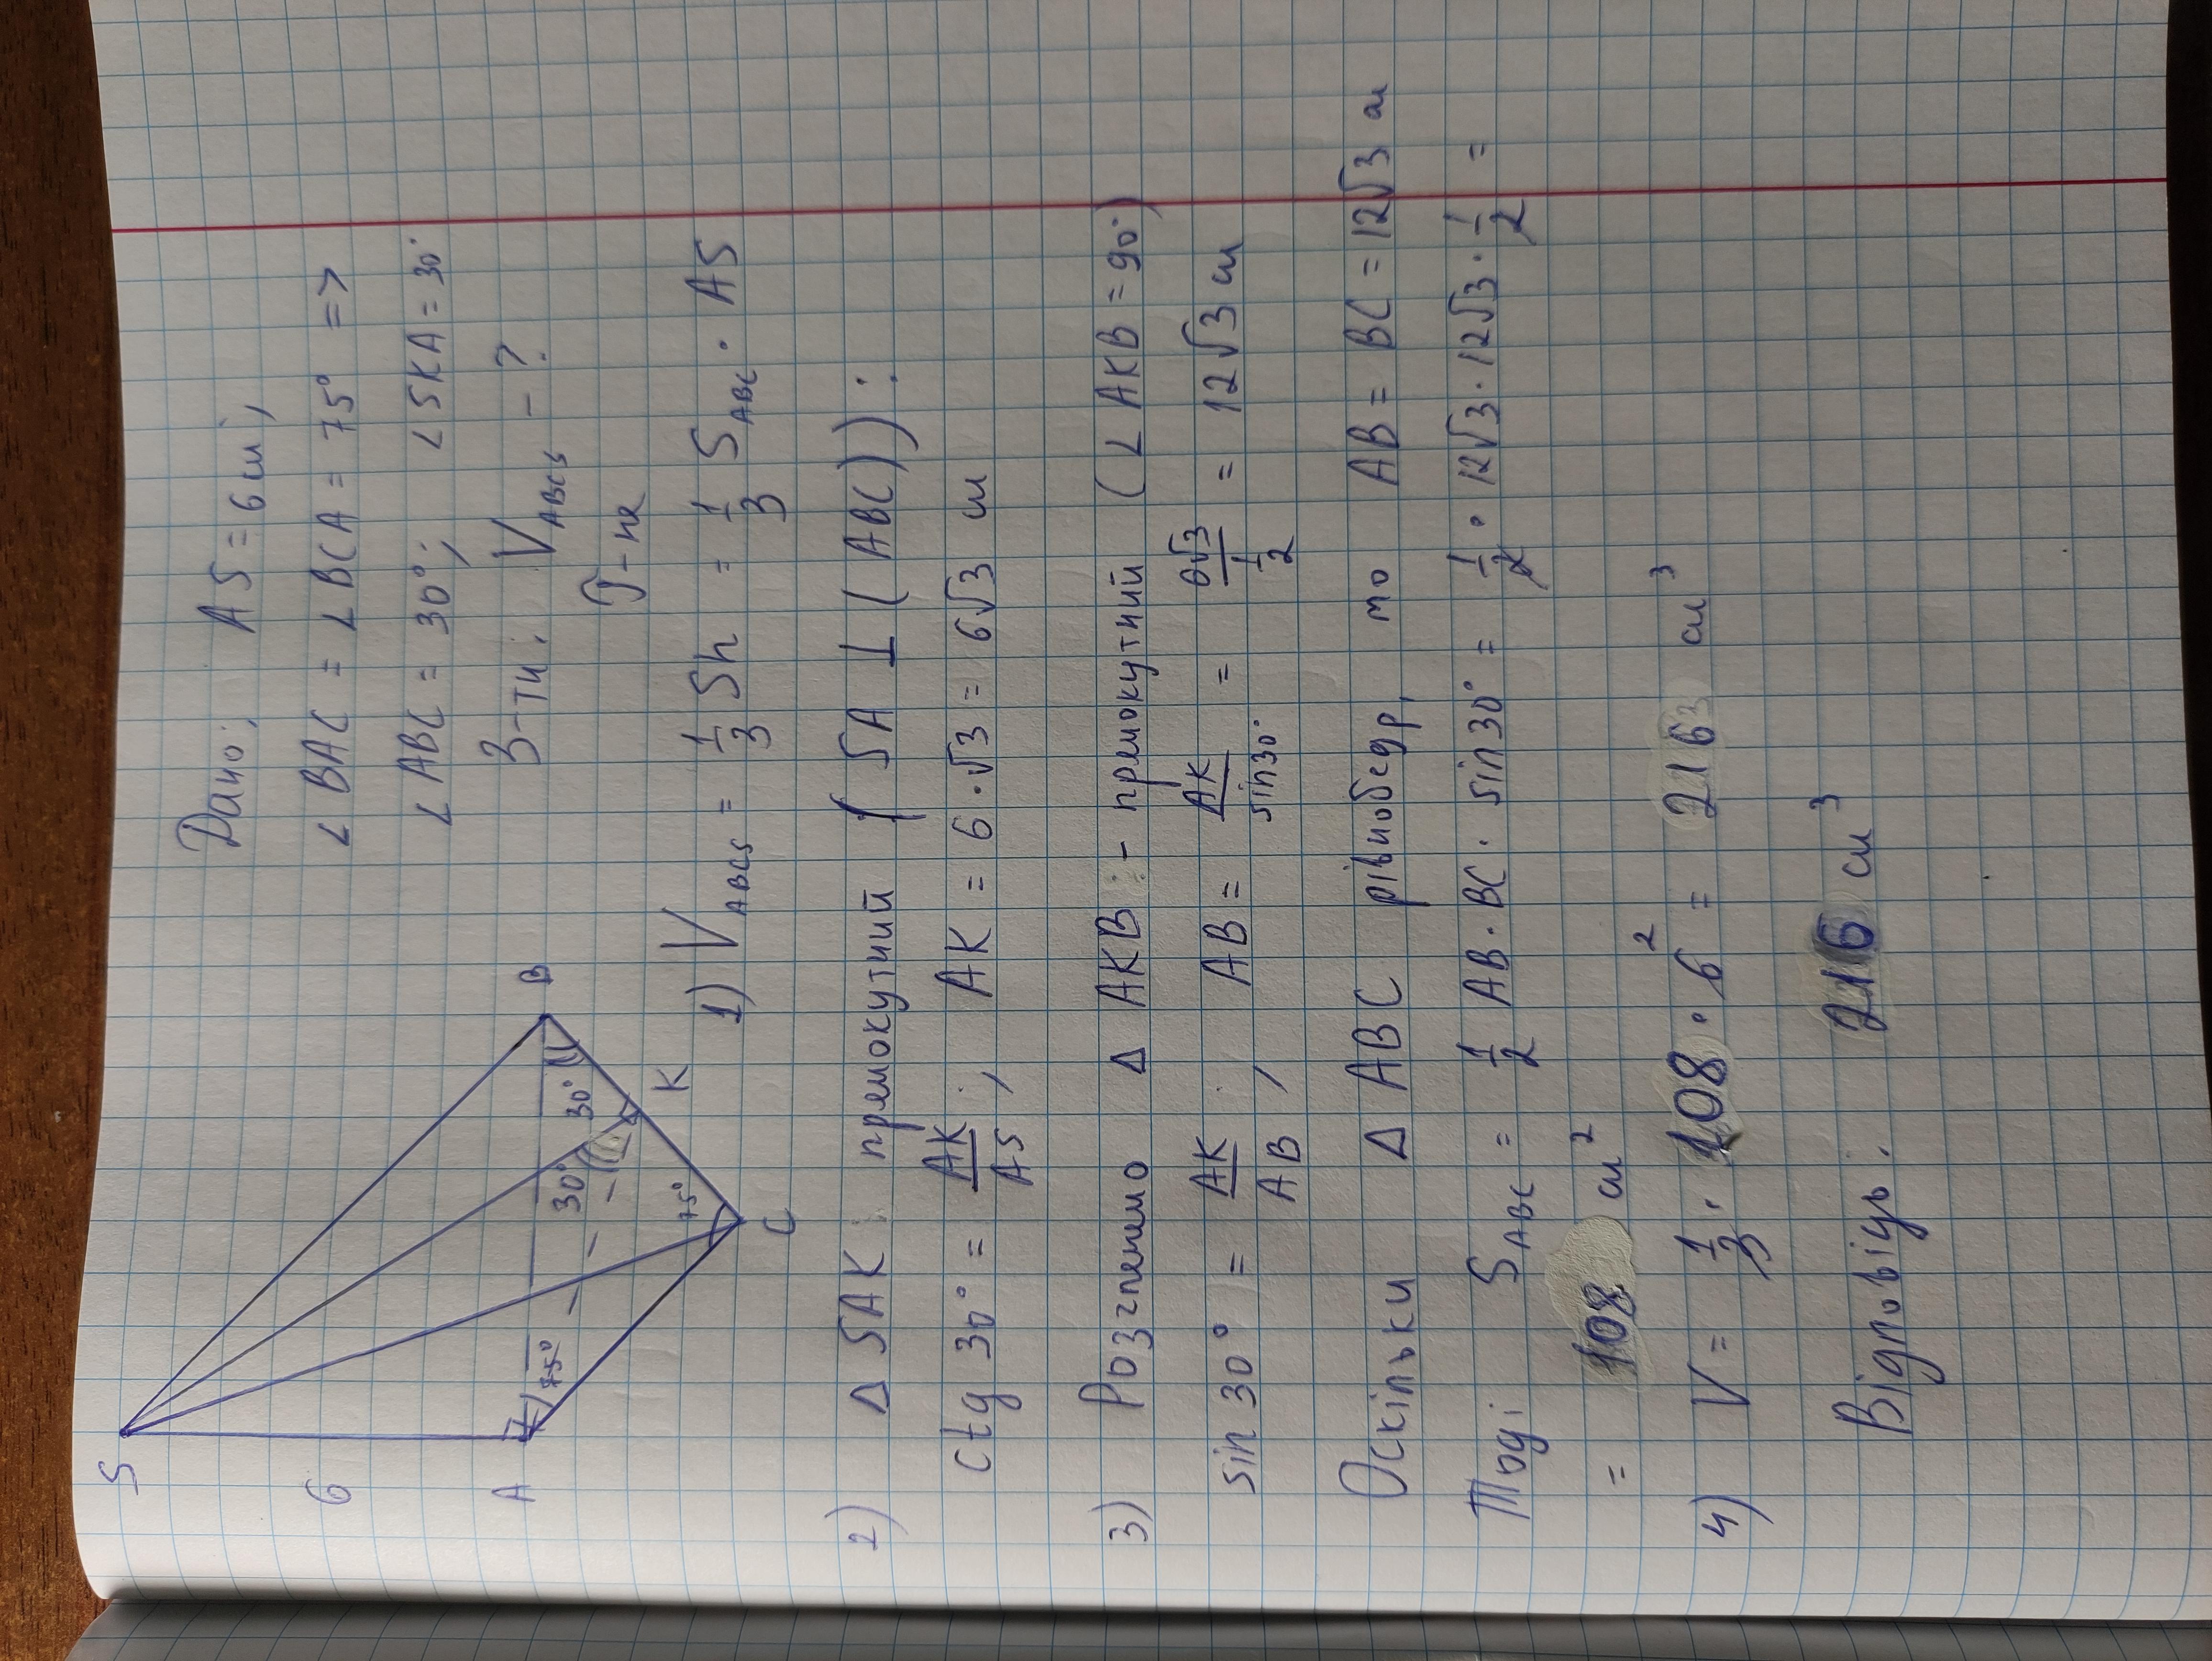 S
6
A
75°
30°
30°
75°
B
K
C
Дано: AS = 6 см,
∠ BAC = ∠ BCA = 75° =>
∠ ABC = 30°; ∠ SKA = 30°
З-ти: V_ABCS - ?
Р-ня
1) V_ABCS = 1/3 Sh = 1/3 S_ABC · AS
2) Δ SAK прямокутний ( SA ⊥ (ABC)):
ctg 30° = AK/AS ; AK = 6 · √3 = 6√3 см
3) Розглянемо Δ AKB - прямокутний (∠ AKB = 90°)
sin 30° = AK/AB ; AB = AK/sin30° = 6√3/(1/2) = 12√3 см
Оскільки Δ ABC рівнобедр, то AB = BC = 12√3 см
Тоді S_ABC = 1/2 AB · BC · sin 30° = 1/2 · 12√3 · 12√3 · 1/2 =
= 108 см²
4) V = 1/3 · 108 · 6 2 = 216 см³
Відповідь: 216 см³